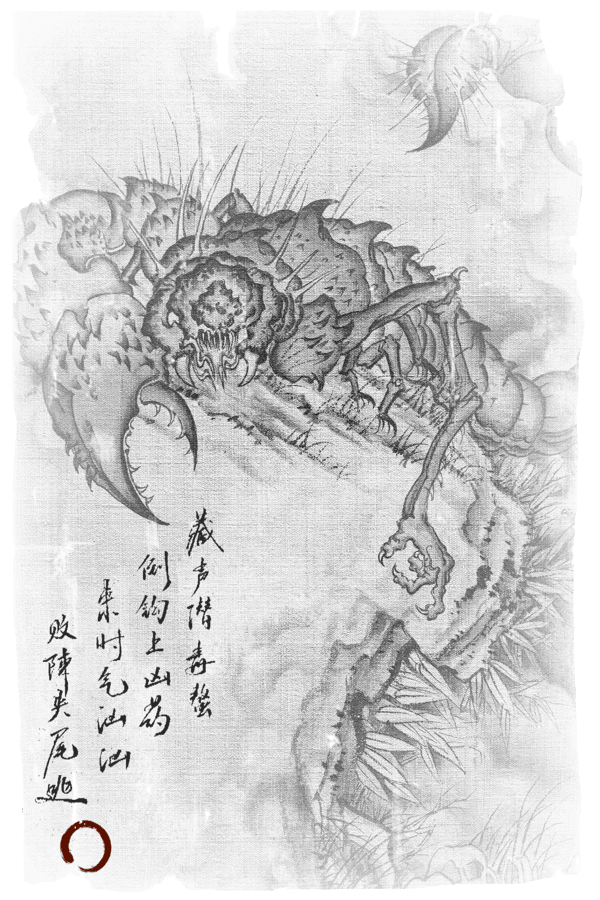 藏声潜毒螫
倒钩上凶芒
来时气汹汹
败阵夹尾逃